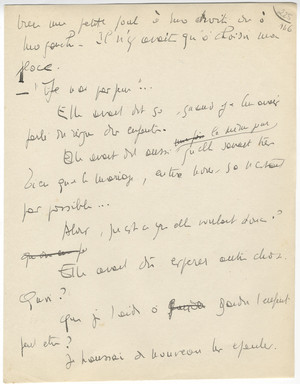 bien une petite poule à ma droite ou à
ma gauche. Il n'y avait qu'à choisir ma
place.
— "Je n'ai pas peur"...
Elle avait dit ça, quand je lui avais
parlé
Elle avait dit aussi qu'elle savait très
bien que le mariage, entre nous, ça n'était
pas possible...
Alors, qu'est-ce qu'elle voulait donc?
Elle avait dû espérer autre chose.
Quoi?
Que j'aide à garder l'enfant
peut-être?
Je haussai de nouveau les épaules.